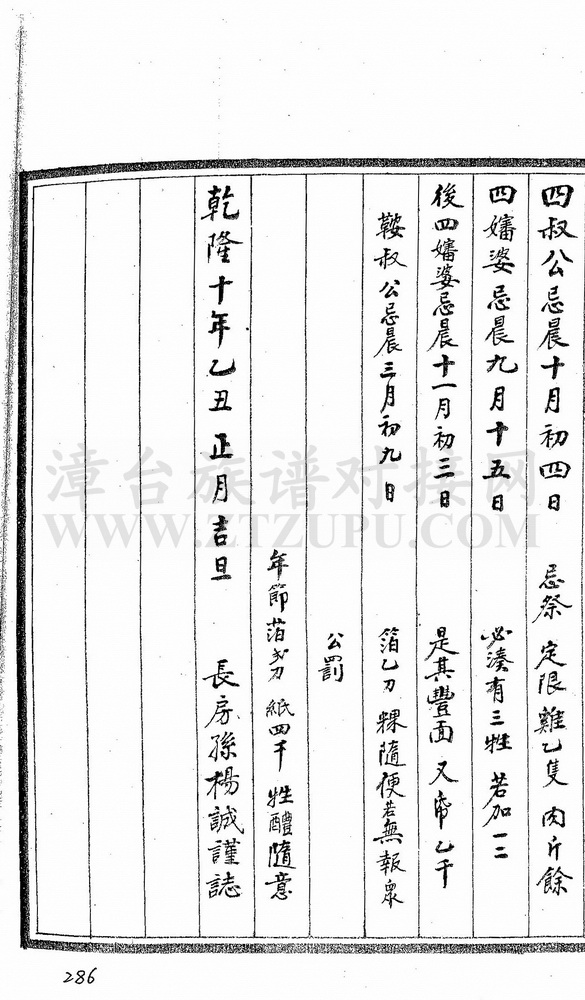 四叔公忌晨十月初四日 忌祭 定限雞乙隻 肉斤餘
四嬸婆忌晨九月十五日 必湊有三牲 若加一二
後四嬸婆忌晨十一月初三日 是其豐面 又帋乙千
鞍叔公忌晨三月初九日 箔乙刀 粿隨便若無報衆
公罰
年節箔 紙四千 牲醴隨意
乾隆十年乙丑正月吉旦 長房孫楊誠謹誌
漳台族谱对接网
WWW.ZTZUPU.COM
286